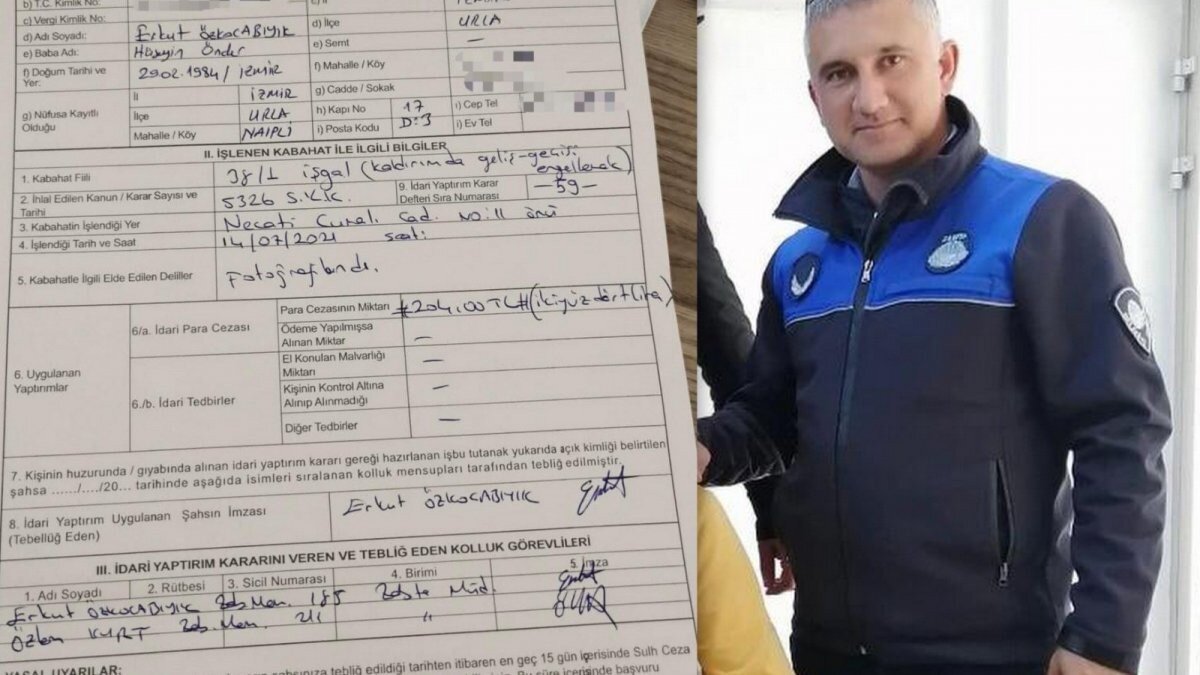 b) T.C. Kimlik No:
c) Vergi Kimlik No:
d) Adı Soyadı: Erkut ÖZKOCABIYIK
e) Baba Adı: Hüseyin Önder
f) Doğum Tarihi ve Yer: 29.02.1984 / İZMİR
g) Nüfusa Kayıtlı Olduğu
İl İZMİR
İlçe URLA
Mahalle / Köy NAİPLİ
d) İlçe URLA
e) Semt —
f) Mahalle / Köy
g) Cadde / Sokak
h) Kapı No 17 D:3
ı) Cep Tel
i) Posta Kodu
i) Ev Tel
II. İŞLENEN KABAHAT İLE İLGİLİ BİLGİLER
1. Kabahat Fiili 38/1 işgal (kaldırımda geliş-geçişi engellemek)
2. İhlal Edilen Kanun / Karar Sayısı ve Tarihi 5326 S.K.K.
9. İdari Yaptırım Karar Defteri Sıra Numarası —59—
3. Kabahatin İşlendiği Yer Necati Cumalı Cad. No:11 önü
4. İşlendiği Tarih ve Saat 14/07/2021 saati
5. Kabahatle İlgili Elde Edilen Deliller Fotoğraflandı.
6. Uygulanan Yaptırımlar
6/a. İdari Para Cezası
Para Cezasının Miktarı #204,00 TL# (ikiyüzdörtlira)
Ödeme Yapılmışsa Alınan Miktar —
6./b. İdari Tedbirler
El Konulan Malvarlığı Miktarı —
Kişinin Kontrol Altına Alınıp Alınmadığı —
Diğer Tedbirler —
7. Kişinin huzurunda / gıyabında alınan idari yaptırım kararı gereği hazırlanan işbu tutanak yukarıda açık kimliği belirtilen
şahsa ....../..../20... tarihinde aşağıda isimleri sıralanan kolluk mensupları tarafından tebliğ edilmiştir.
8. İdari Yaptırım Uygulanan Şahsın İmzası (Tebellüğ Eden) Erkut ÖZKOCABIYIK
III. İDARİ YAPTIRIM KARARINI VEREN VE TEBLİĞ EDEN KOLLUK GÖREVLİLERİ
1. Adı Soyadı 2. Rütbesi 3. Sicil Numarası 4. Birimi 5. İmza
Erkut ÖZKOCABIYIK Zab. Mem. 185 Zabıta Müd.
Özlem KURT Zab. Mem. 211 "
YASAL UYARILAR:
tebliğ edildiği tarihten itibaren en geç 15 gün içerisinde Sulh Ceza
Bu süre içerisinde başvuru